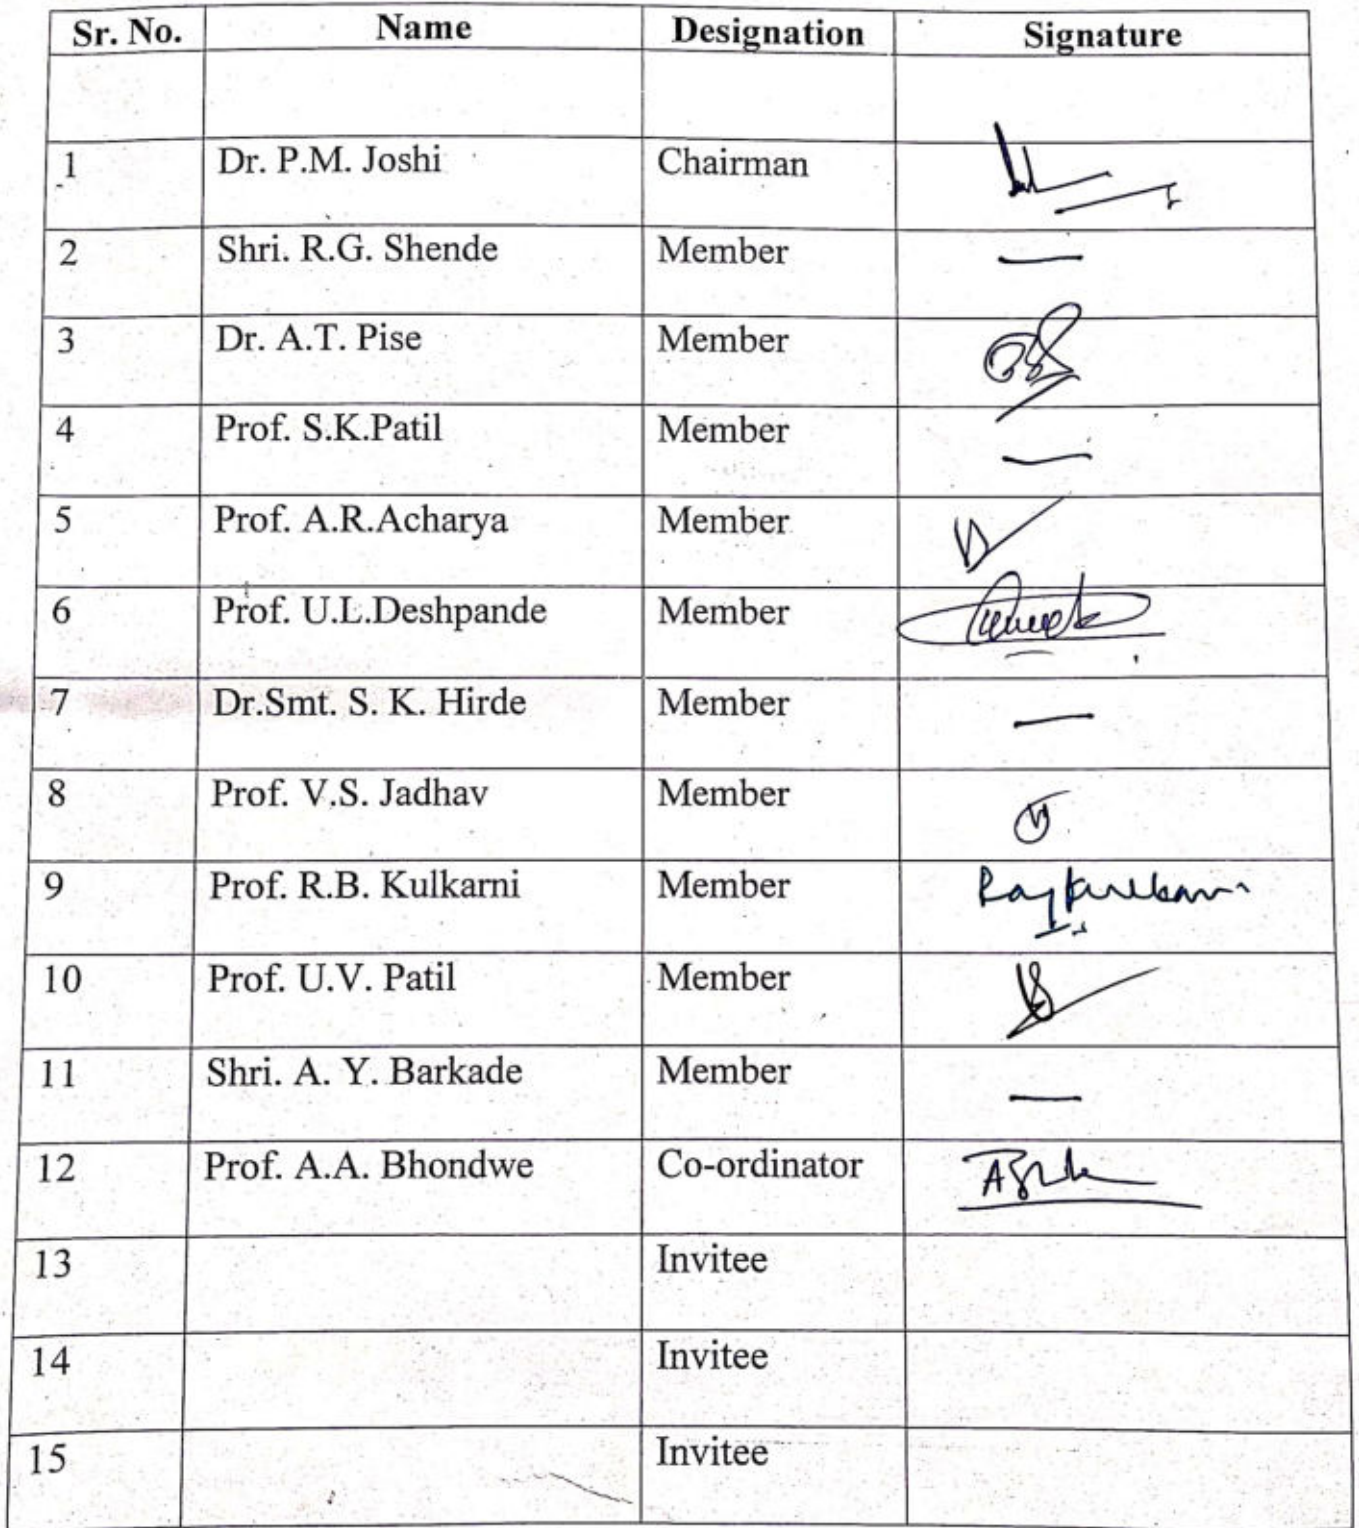 Sr. No. Name Designation Signature
1 Dr. P.M. Joshi Chairman
2 Shri. R.G. Shende Member —
3 Dr. A.T. Pise Member
4 Prof. S.K.Patil Member —
5 Prof. A.R.Acharya Member
6 Prof. U.L.Deshpande Member
7 Dr.Smt. S. K. Hirde Member —
8 Prof. V.S. Jadhav Member
9 Prof. R.B. Kulkarni Member Rajkulkarni
10 Prof. U.V. Patil Member
11 Shri. A. Y. Barkade Member —
12 Prof. A.A. Bhondwe Co-ordinator
13 Invitee
14 Invitee
15 Invitee